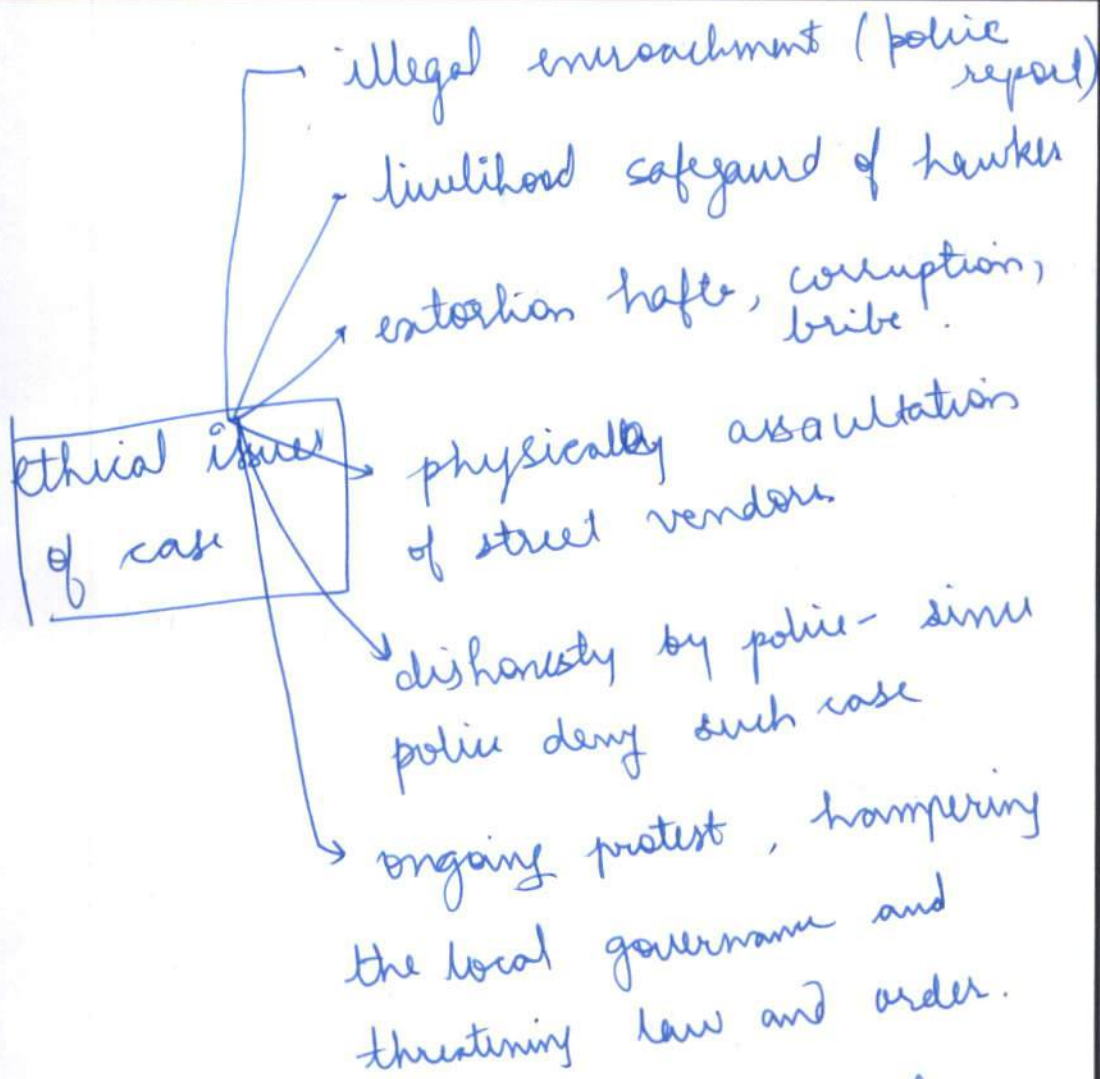 illegal encroachment (police
report)
livelihood safegaurd of hawker
extortion hafte, corruption,
bribe.
ethical issues
of case
physically assaultation
of street vendors
dishonesty by police - since
police deny such case
ongoing protest, hampering
the local governance and
threatining law and order.